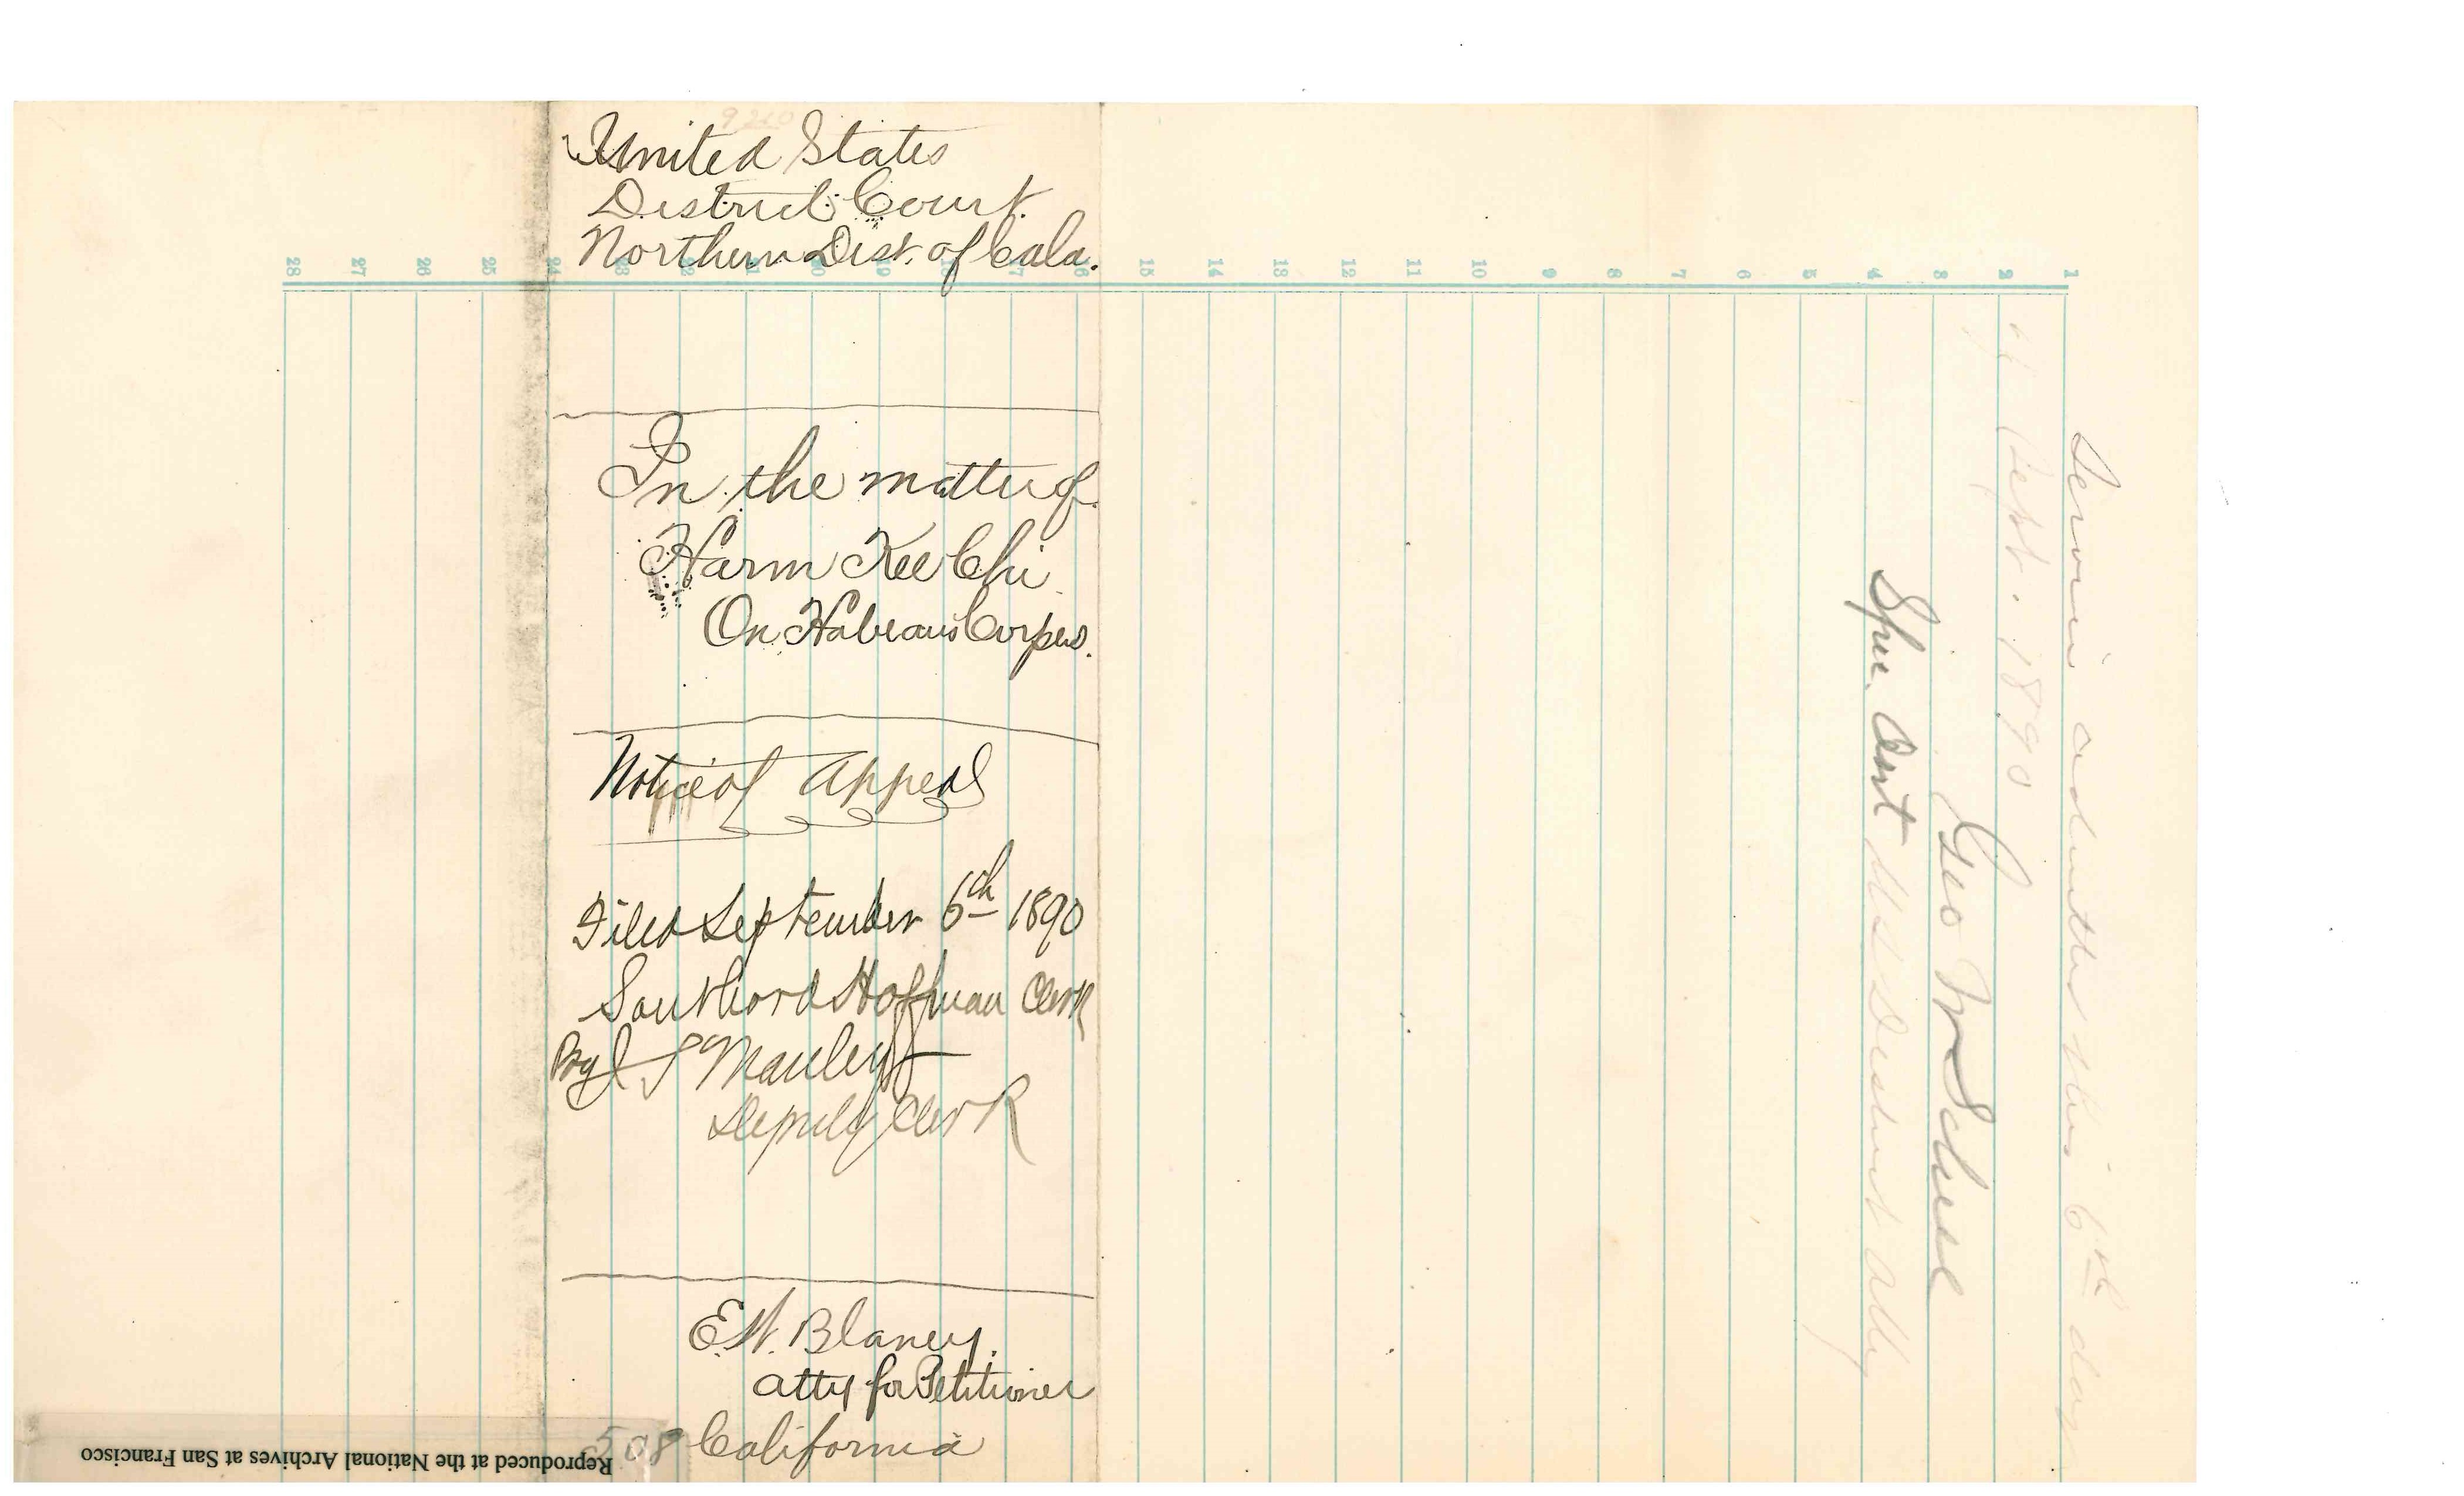 9210
United States
District Court
Northern Dist. of Cala.
In the matter of
Harm Kee Chi
On Habeaus Corpus.
Notice of Appeal
Filed September 6th 1890
Southard Hoffman Clerk
By J S Manley
Deputy Clerk
E.W. Blaney.
Atty for Petitioner
508 California
Reproduced at the National Archives at San Francisco
Service admitted this 6th day
of Sept. 1890
Geo
Spec. Asst U S District Atty
1 2 3 4 5 6 7 8 9 10 11 12 13 14 15 16 17 18 19 20 21 22 23 24 25 26 27 28